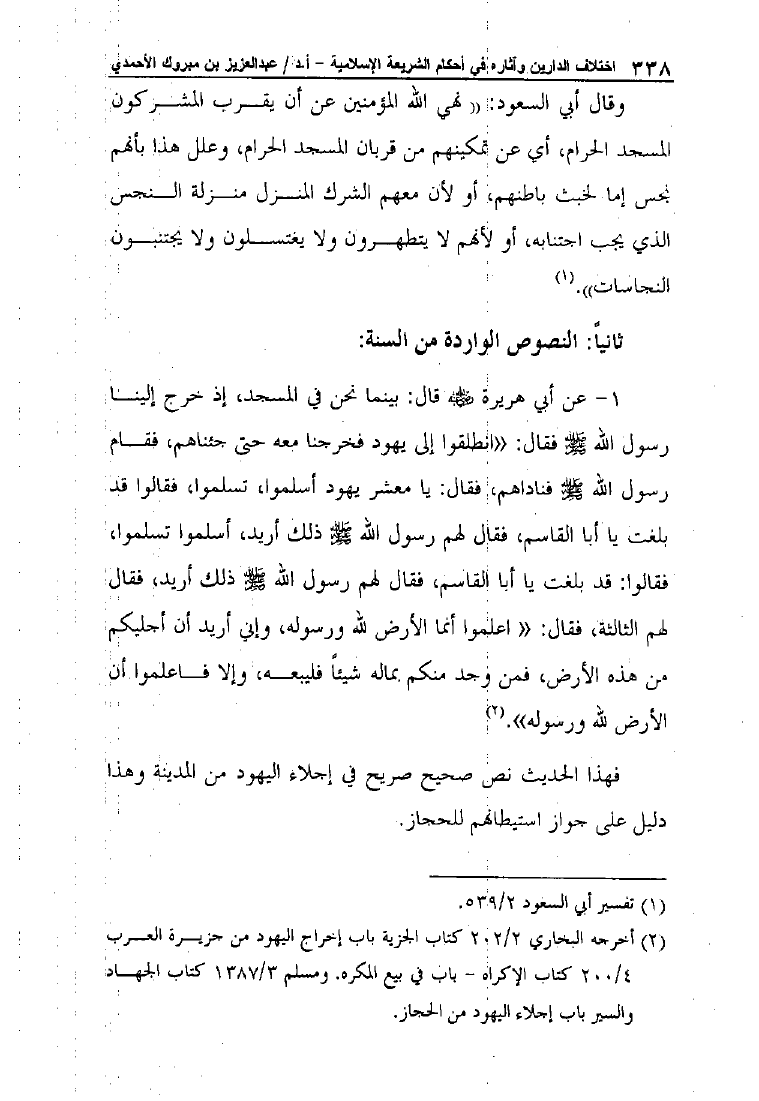 ٣٣٨ اختلاف الدارين وآثاره في أحكام الشريعة الإسلامية – أ.د/ عبدالعزيز بن مبروك الأحمدي
وقال أبي السعود: «نهي الله المؤمنين عن أن يقرب المشركون
المسجد الحرام، أي عن تمكينهم من قربان المسجد الحرام، وعلل هذا بأنهم
نجس إما لخبث باطنهم، أو لأن معهم الشرك المنزل منزلة النجس
الذي يجب اجتنابه، أو لأنهم لا يتطهرون ولا يغتسلون ولا يجتنبون
النجاسات».(١)
ثانياً: النصوص الواردة من السنة:
١- عن أبي هريرة ﷺ قال: بينما نحن في المسجد، إذ خرج إلينا
رسول الله ﷺ فقال: «انطلقوا إلى يهود فخرجنا معه حتى جئناهم، فقام
رسول الله ﷺ فناداهم، فقال: يا معشر يهود أسلموا، تسلموا، فقالوا قد
بلغت يا أبا القاسم، فقال لهم رسول الله ﷺ ذلك أريد، أسلموا تسلموا،
فقالوا: قد بلغت يا أبا القاسم، فقال لهم رسول الله ﷺ ذلك أريد، فقال
لهم الثالثة، فقال: « اعلموا أنما الأرض لله ورسوله، وإني أريد أن أجليكم
من هذه الأرض، فمن وجد منكم بماله شيئاً فليبعه، وإلا فاعلموا أن
الأرض لله ورسوله».(٢)
فهذا الحديث نص صحيح صريح في إجلاء اليهود من المدينة وهذا
دليل على جواز استيطانهم للحجاز.
(١) تفسير أبي السعود ٥٣٩/٢.
(٢) أخرجه البخاري ٢٠٢/٢ كتاب الجزية باب إخراج اليهود من جزيرة العرب
٢٠٠/٤ كتاب الإكراه – باب في بيع المكره. ومسلم ١٣٨٧/٣ كتاب الجهاد
والسير باب إجلاء اليهود من الحجاز.